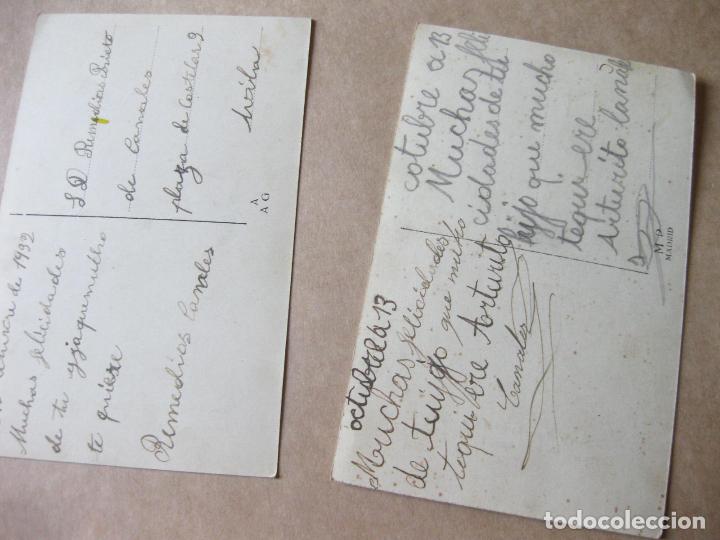 de 1932
Muchas felicidades
de tu yjaquemutho
te quiere
Remedios Canales
SD Remeditas Prieto
de Canales
plaza de Castelar 9
Avila
A
A G
octubre a 13
Mouchas felicidades
de tuijo que mucho
tequi ere Arturito
Canales
cotubre a 13
Muchas feli
cidades de tu
hijo que mucho
tequi ere
Arturito Canale
M P
MADRID
todocoleccion.net